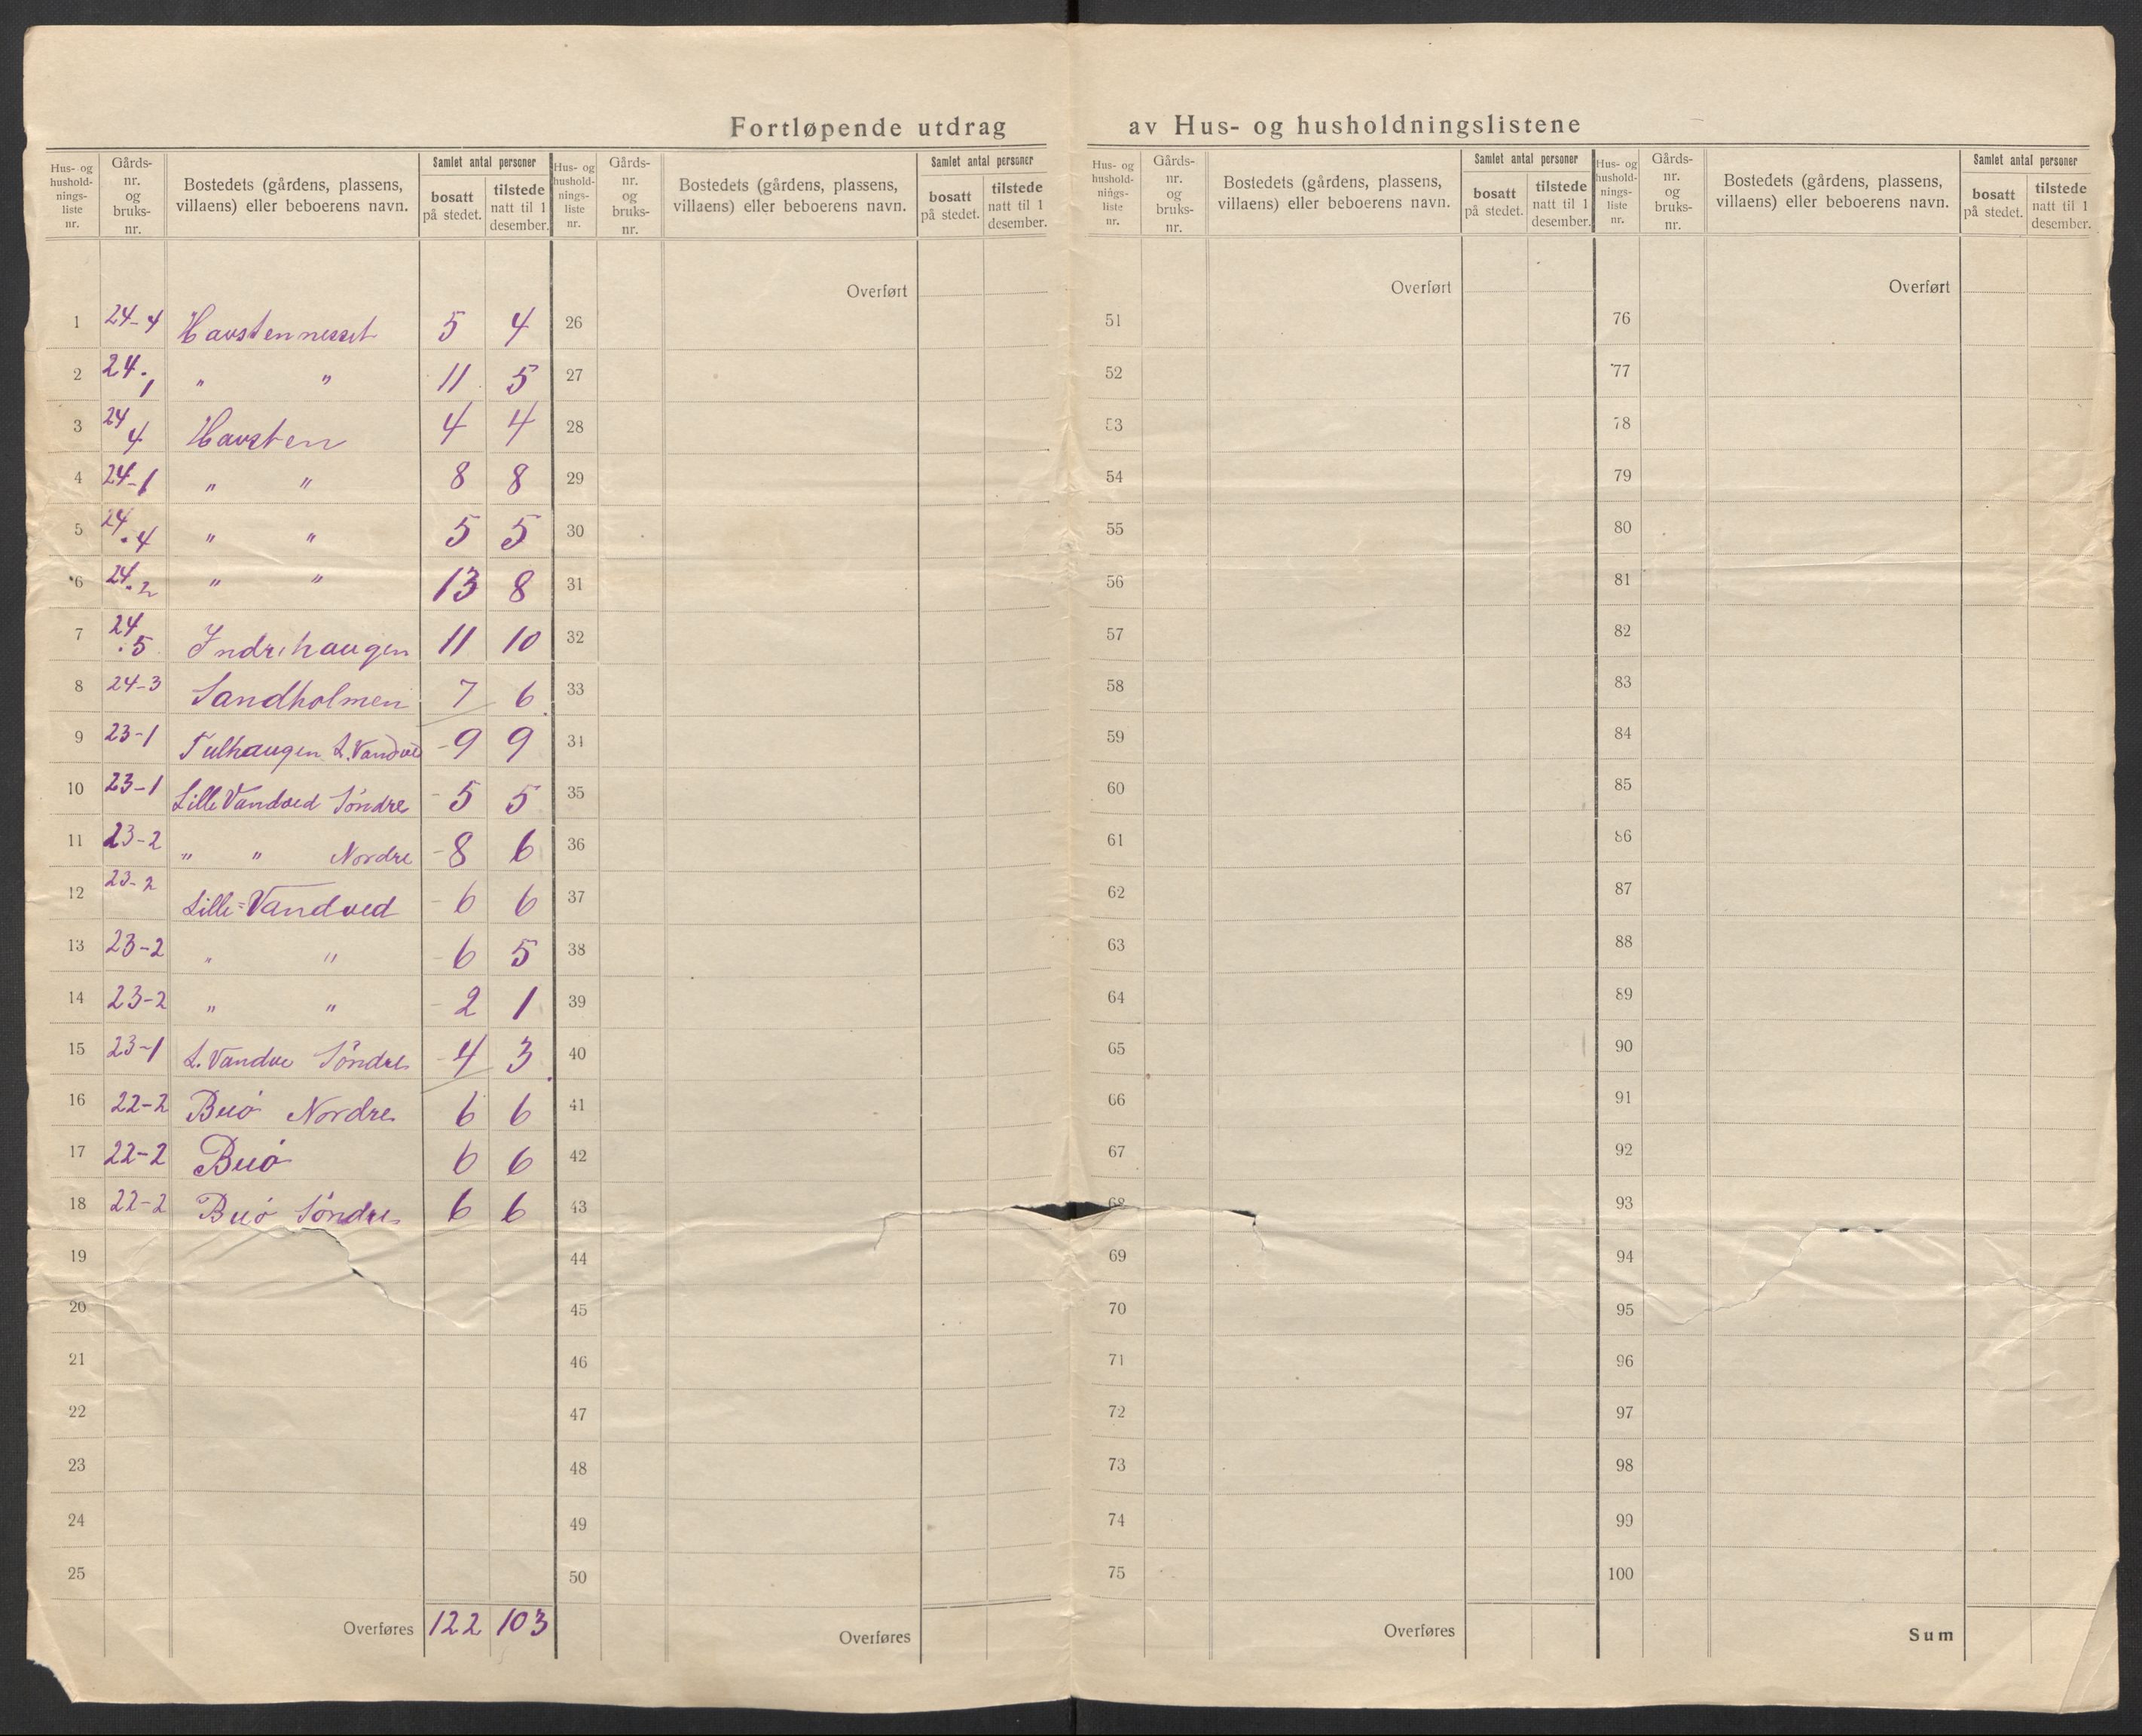 Fortløpende utdrag av Hus- og husholdningslistene
Hus- og husholdnings-liste nr. Gårds-nr. og bruks-nr. Bostedets (gårdens, plassens, villaens) eller beboerens navn. Samlet antal personer bosatt på stedet. tilstede natt til 1 desember.
Hus- og husholdnings-liste nr. Gårds-nr. og bruks-nr. Bostedets (gårdens, plassens, villaens) eller beboerens navn. Samlet antal personer bosatt på stedet. tilstede natt til 1 desember.
Hus- og husholdnings-liste nr. Gårds-nr. og bruks-nr. Bostedets (gårdens, plassens, villaens) eller beboerens navn. Samlet antal personer bosatt på stedet. tilstede natt til 1 desember.
Hus- og husholdnings-liste nr. Gårds-nr. og bruks-nr. Bostedets (gårdens, plassens, villaens) eller beboerens navn. Samlet antal personer bosatt på stedet. tilstede natt til 1 desember.
Overført Overført Overført
1 24-4 Havstennesset 5 4 26 51 76
2 24.1 " " 11 5 27 52 77
3 24 4 Havsten 4 4 28 53 78
4 24-1 " " 8 8 29 54 79
5 24.4 " " 5 5 30 55 80
6 24.2 " " 13 8 31 56 81
7 24.5 Indrehaugen 11 10 32 57 82
8 24-3 Sandholmen 7 6 33 58 83
9 23-1 L. Vandve 9 9 34 59 84
10 23-1 Lille Vandved Söndre 5 5 35 60 85
11 23-2 " " Nordre 8 6 36 61 86
12 23-2 Lille=Vandved 6 6 37 62 87
13 23-2 " " 6 5 38 63 88
14 23-2 " " 2 1 39 64 89
15 23-1 L. Vandve Söndre 4 3 40 65 90
16 22-2 Buö Nordre 6 6 41 66 91
17 22-2 Buö 6 6 42 67 92
18 22-2 Buö Söndre 6 6 43 68 93
19 44 69 94
20 45 70 95
21 46 71 96
22 47 72 97
23 48 73 98
24 49 74 99
25 50 75 100
Overføres 122 103 Overføres Overføres Sum